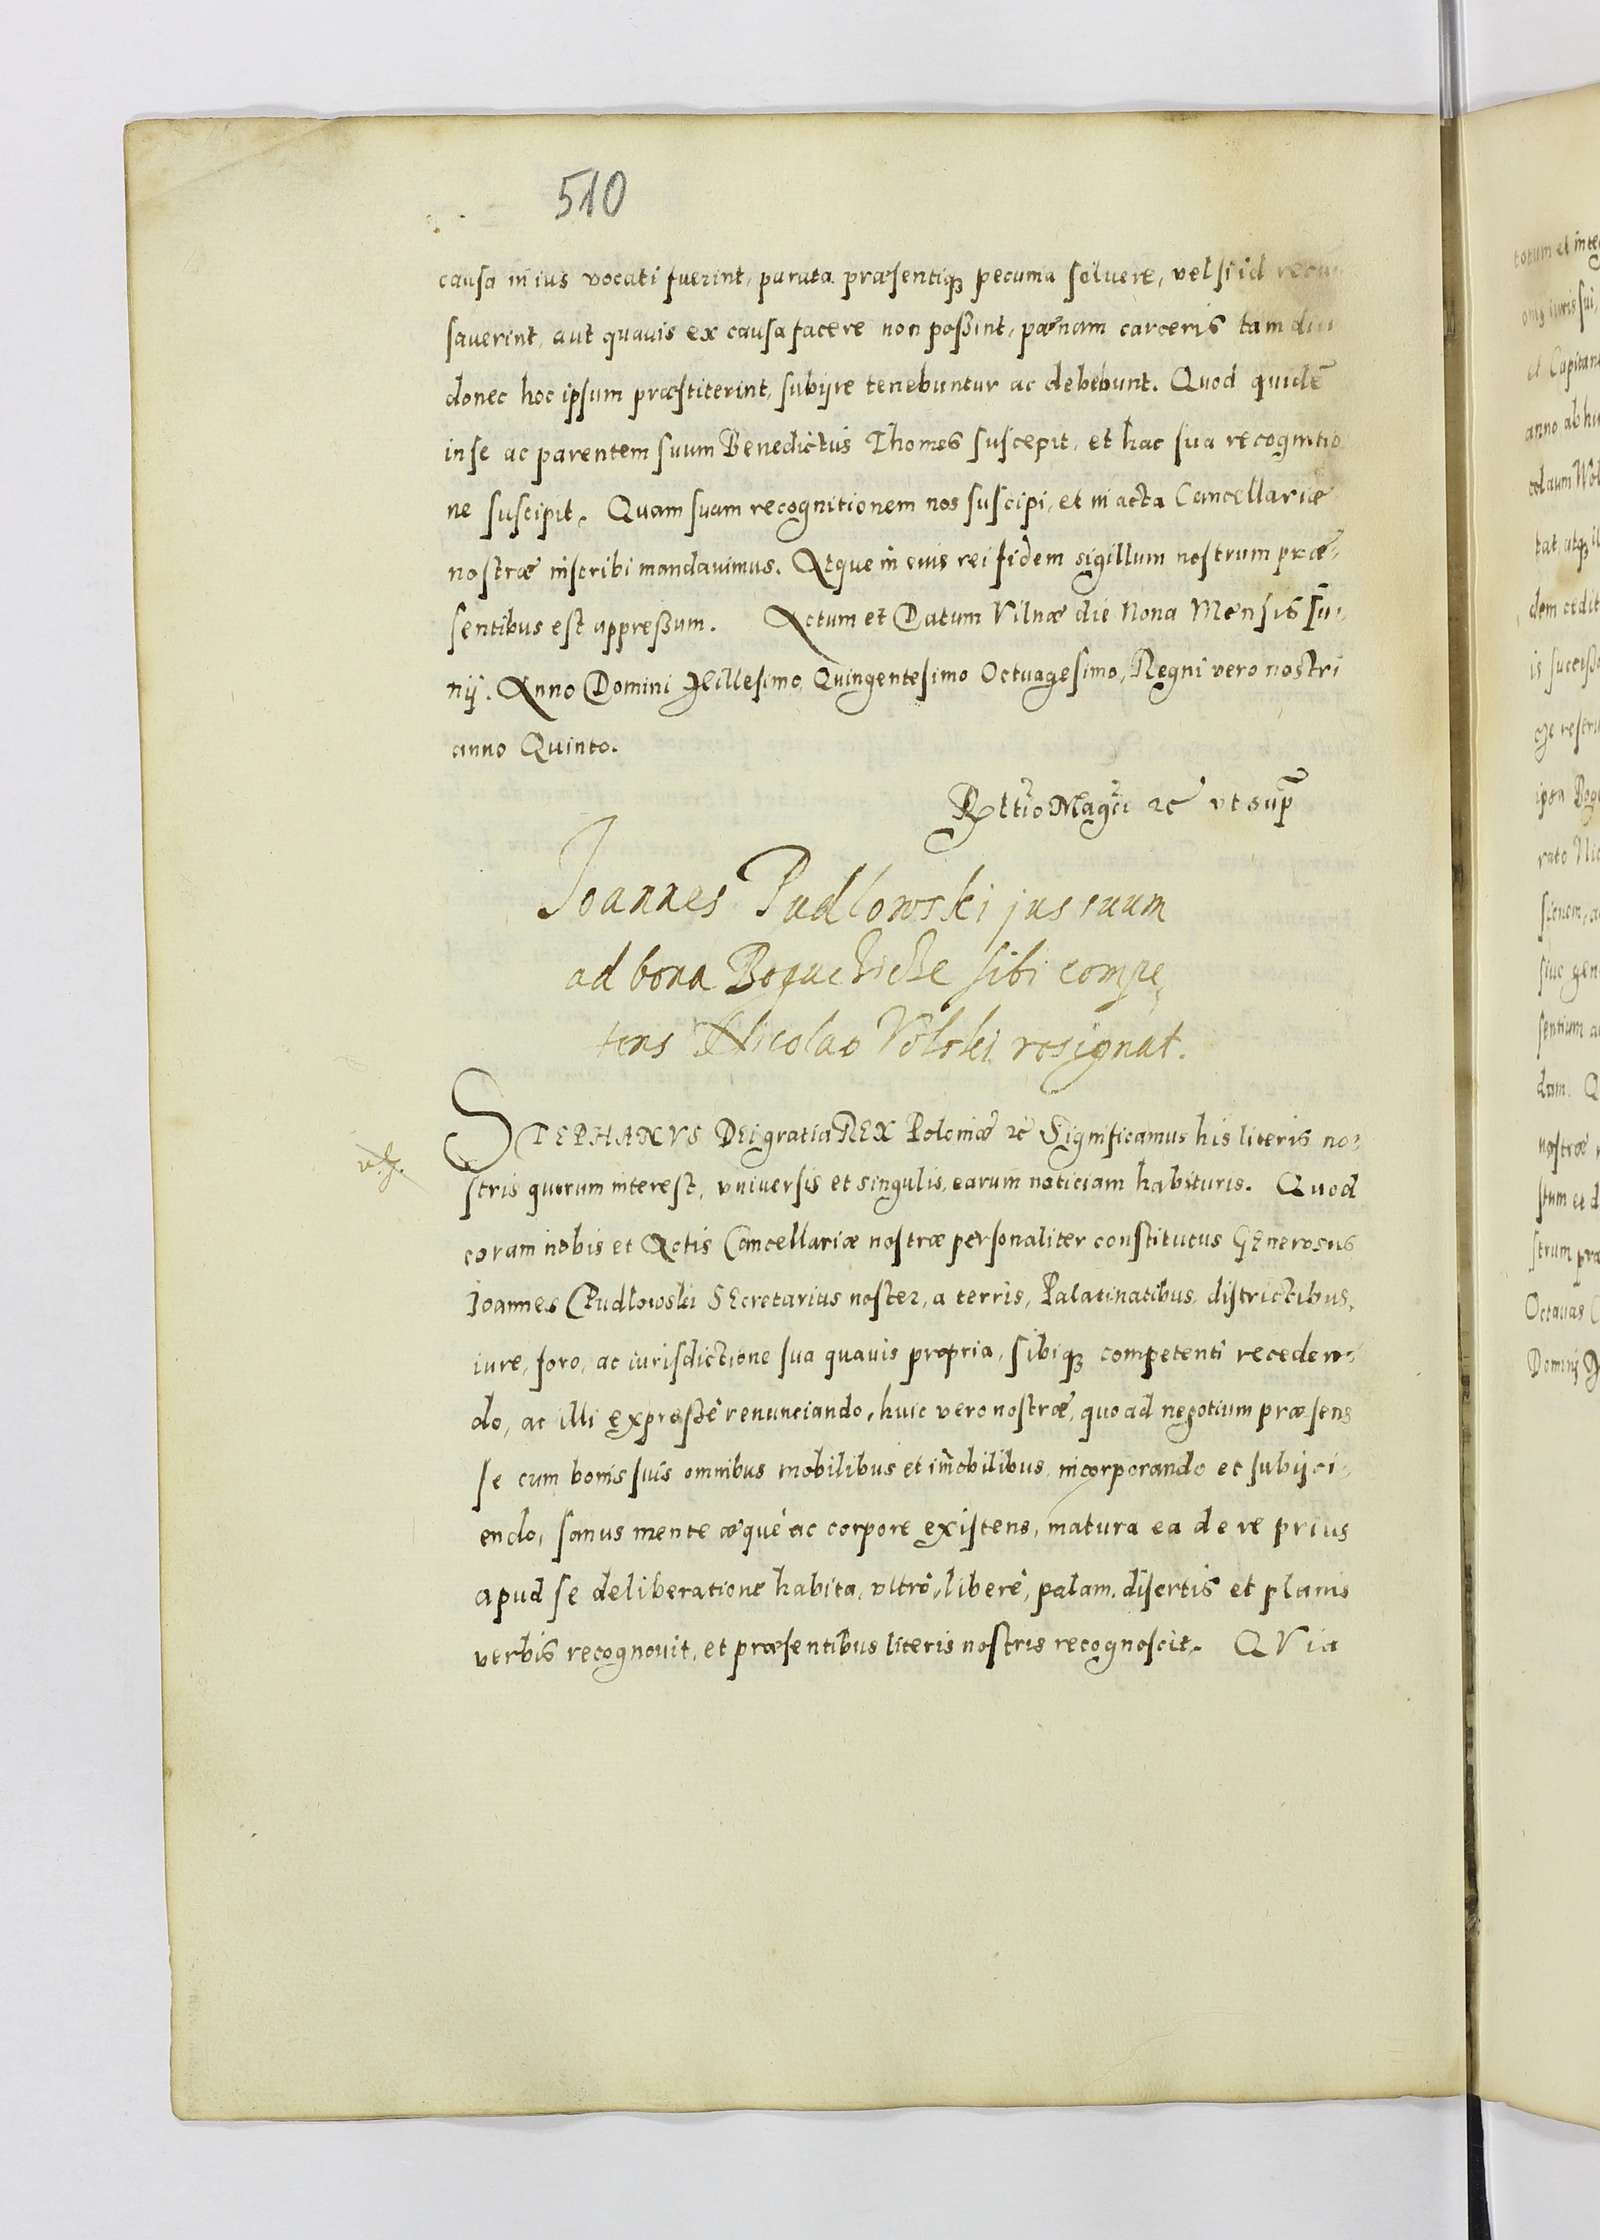 510
causa in ius vocati fuerint, parata præsentiq3 pecunia soluere, vel si id recu
sauerint, aut quauis ex causa facere non poßint, pœnam carceris tam diu
donec hoc ipsum præstiterint, subijre tenebuntur ac debebunt. Quod quidē
in se ac parentem suum Benedictus Thomes suscepit, et hac sua recognitio
ne suscipit. Quam suam recognitionem nos suscipi, et in acta Cancellariæ
nostræ inscribi mandauimus. Atque in cuius rei fidem sigillum nostrum præ-
sentibus est appreßum. Actum et Datum Vilnæ die Nona Mensis Iu-
nij. Anno Domini Millesimo Quingentesimo Octuagesimo, Regni vero nostri
anno Quinto.
Rltio Magci &c vt supra
Joannes Pudlowski jus suum
ad bona sibi compe
tens Nicolao Volski resignat.
STEPHANVS DEI gratia REX Poloniæ &c Significamus his literis no-
stris quorum interest, vniuersis et singulis, earum noticiam habituris. Quod
coram nobis et Actis Cancellariæ nostræ personaliter constitutus GEnerosus
Ioannes Pudlowski SEcretarius noster, a terris, Palatinatibus, districtibus,
iure, foro, ac iurisdictione sua quauis propria, sibiq3 competenti receden-
do, ac illi expreßè renunciando, huic vero nostræ, quo ad negotium præsens
se cum bonis suis omnibus mobilibus et im̄obilibus, incorporando et subijci-
endo, sanus mente æquè ac corpore existens, matura ea de re prius
apud se deliberatione habita, vltrò, liberè, palam, disertis et planis
verbis recognouit, et præsentibus literis nostris recognoscit. QVia